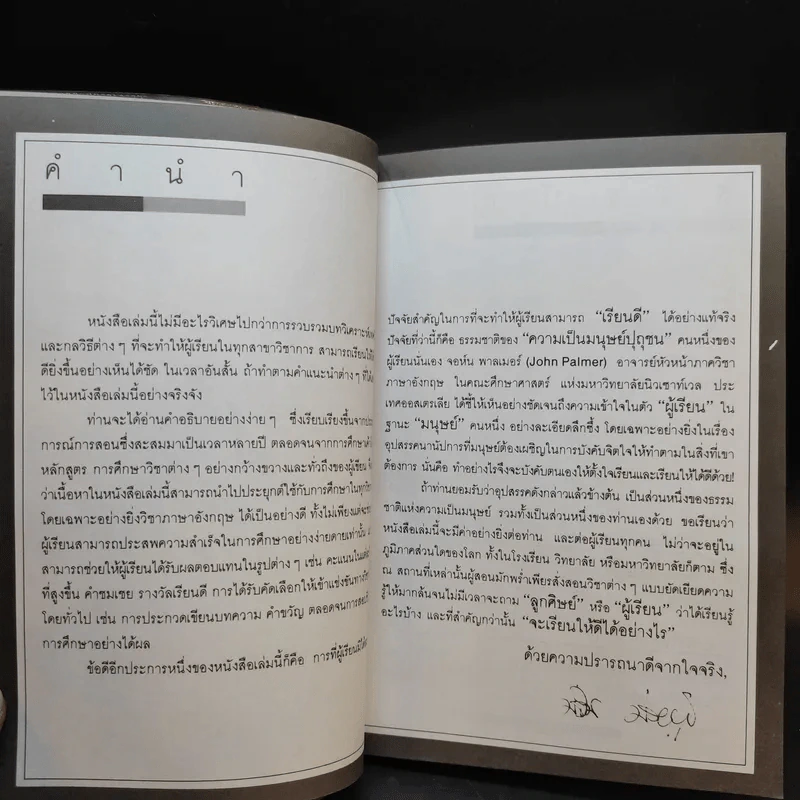 คำนำ
หนังสือเล่มนี้ไม่มีอะไรวิเศษไปกว่าการรวบรวมบทวิเคราะห์
และกลวิธีต่างๆ ที่จะทำให้ผู้เรียนในทุกสาขาวิชาการ สามารถเรียนได้
ดียิ่งขึ้นอย่างเห็นได้ชัด ในเวลาอันสั้น ถ้าทำตามคำแนะนำต่างๆ ที่ได้
ไว้ในหนังสือเล่มนี้อย่างจริงจัง
ท่านจะได้อ่านคำอธิบายอย่างง่ายๆ ซึ่งเรียบเรียงขึ้นจาก
การณ์การสอนซึ่งสะสมมาเป็นเวลาหลายปี ตลอดจนจากการศึกษา
หลักสูตร การศึกษาวิชาต่างๆ อย่างกว้างขวางและทั่วถึงของผู้เขียน
ว่าเนื้อหาในหนังสือเล่มนี้สามารถนำไปประยุกต์ใช้กับการศึกษาในทุก
โดยเฉพาะอย่างยิ่งวิชาภาษาอังกฤษ ได้เป็นอย่างดี ทั้งไม่เพียงแต่จะ
ผู้เรียนสามารถประสพความสำเร็จในการศึกษาอย่างง่ายดายเท่านั้น
สามารถช่วยให้ผู้เรียนได้รับผลตอบแทนในรูปต่างๆ เช่น คะแนนใน
ที่สูงขึ้น คำชมเชย รางวัลเรียนดี การได้รับคัดเลือกให้เข้าแข่งขันทาง
โดยทั่วไป เช่น การประกวดเขียนบทความ คำขวัญ ตลอดจนการ
การศึกษาอย่างได้ผล
ข้อดีอีกประการหนึ่งของหนังสือเล่มนี้ก็คือ การที่ผู้เรียนมี
ปัจจัยสำคัญในการที่จะทำให้ผู้เรียนสามารถ “เรียนดี” ได้อย่างแท้จริง
ปัจจัยที่ว่านี้ก็คือ ธรรมชาติของ “ความเป็นมนุษย์ปุถุชน” คนหนึ่งของ
ผู้เรียนนั่นเอง จอห์น พาลเมอร์ (John Palmer) อาจารย์หัวหน้าภาควิชา
ภาษาอังกฤษ ในคณะศึกษาศาสตร์ แห่งมหาวิทยาลัยนิวเซาท์เวล ประ
เทศออสเตรเลีย ได้ชี้ให้เห็นอย่างชัดเจนถึงความเข้าใจในตัว “ผู้เรียน” ใน
ฐานะ “มนุษย์” คนหนึ่ง อย่างละเอียดลึกซึ้ง โดยเฉพาะอย่างยิ่งในเรื่อง
อุปสรรคนานัปการที่มนุษย์ต้องเผชิญในการบังคับจิตใจให้ทำตามในสิ่งที่เขา
ต้องการ นั่นคือ ทำอย่างไรจึงจะบังคับตนเองให้ตั้งใจเรียนและเรียนให้ได้ดีด้วย!
ถ้าท่านยอมรับว่าอุปสรรคดังกล่าวแล้วข้างต้น เป็นส่วนหนึ่งของธรรม
ชาติแห่งความเป็นมนุษย์ รวมทั้งเป็นส่วนหนึ่งของท่านเองด้วย ขอเรียนว่า
หนังสือเล่มนี้จะมีค่าอย่างยิ่งต่อท่าน และต่อผู้เรียนทุกคน ไม่ว่าจะอยู่ใน
ภูมิภาคส่วนใดของโลก ทั้งในโรงเรียน วิทยาลัย หรือมหาวิทยาลัยก็ตาม ซึ่ง
ณ สถานที่เหล่านั้นผู้สอนมักพร่ำเพียรสั่งสอนวิชาต่างๆ แบบยัดเยียดความ
รู้ให้มากล้นจนไม่มีเวลาจะถาม “ลูกศิษย์” หรือ “ผู้เรียน” ว่าได้เรียนรู้
อะไรบ้าง และที่สำคัญกว่านั้น “จะเรียนให้ดีได้อย่างไร”
ด้วยความปรารถนาดีจากใจจริง,